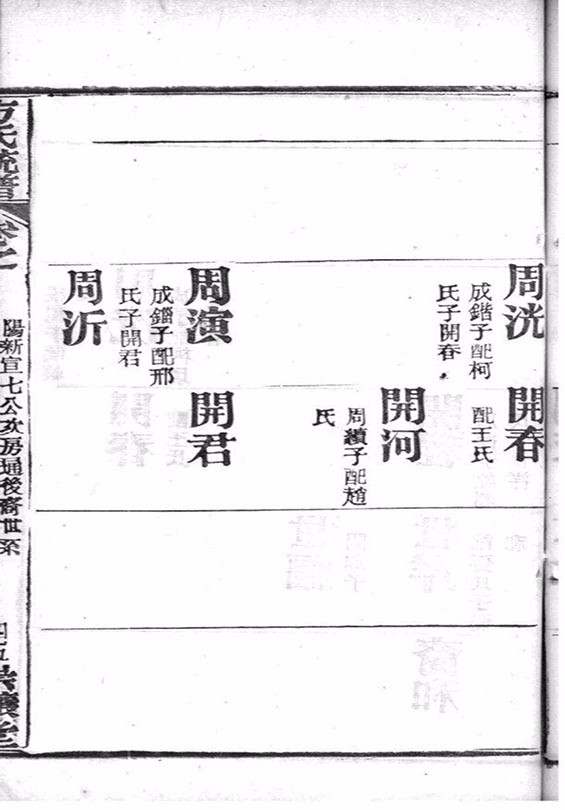 周洸
成鍇子配柯
氏子開春
開春
配王氏
開河
周續子配趙
氏
周演
成錙子配邢
氏子開君
開君
周沂
方氏統譜
卷之
陽新宣七公攻房通後裔世系